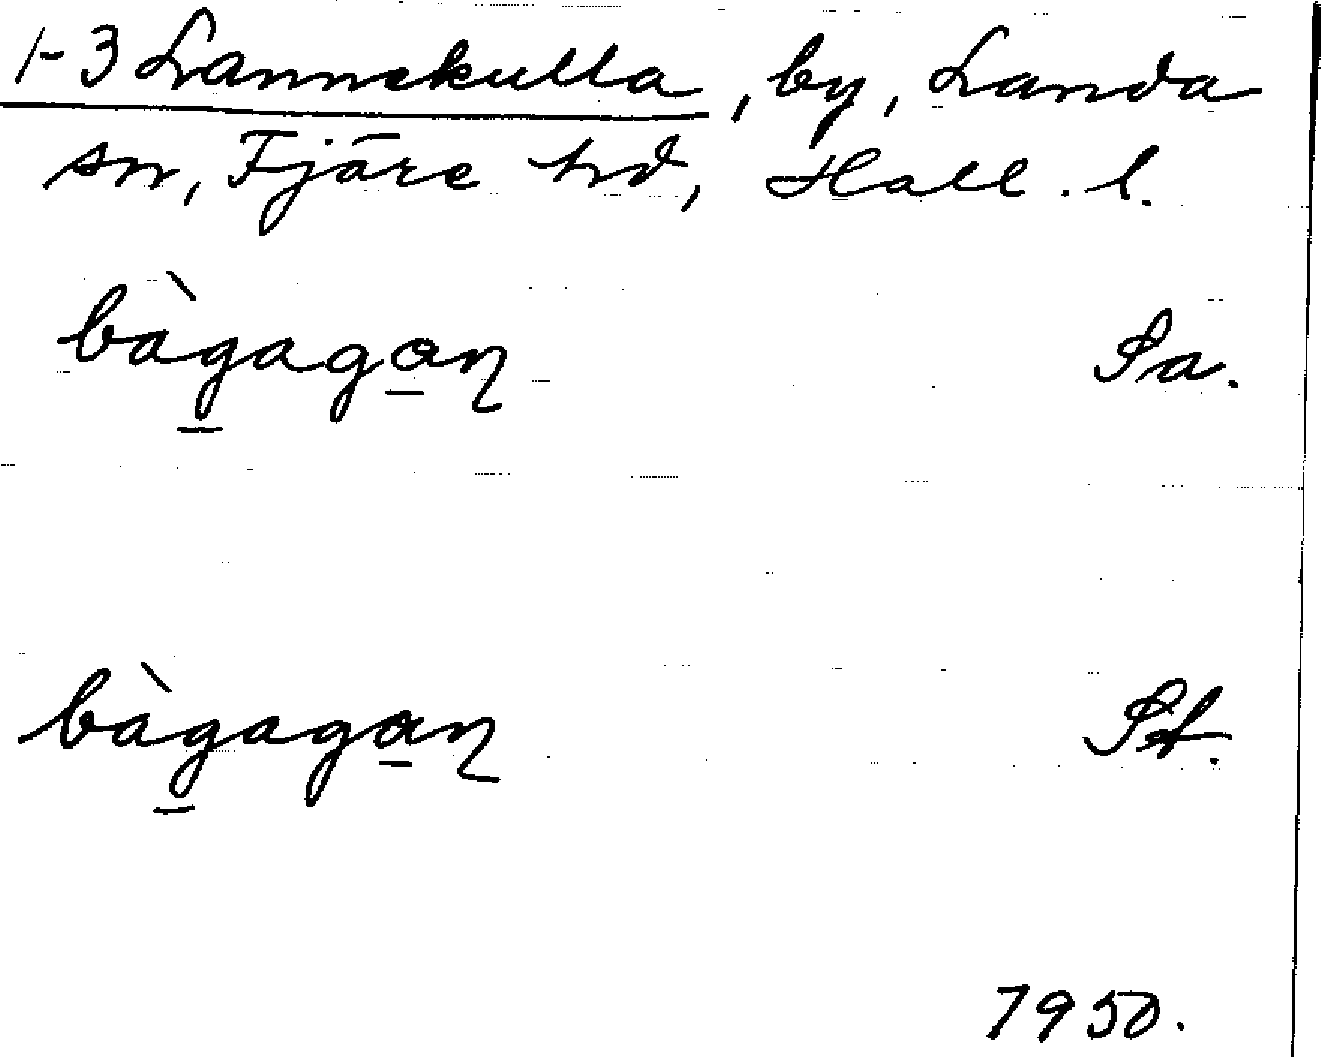 1-3 Lannekulla, by, Landa
sn, Fjäre hd, Hall. l.
bàgagan Sa.
bàgagan St.
7950.